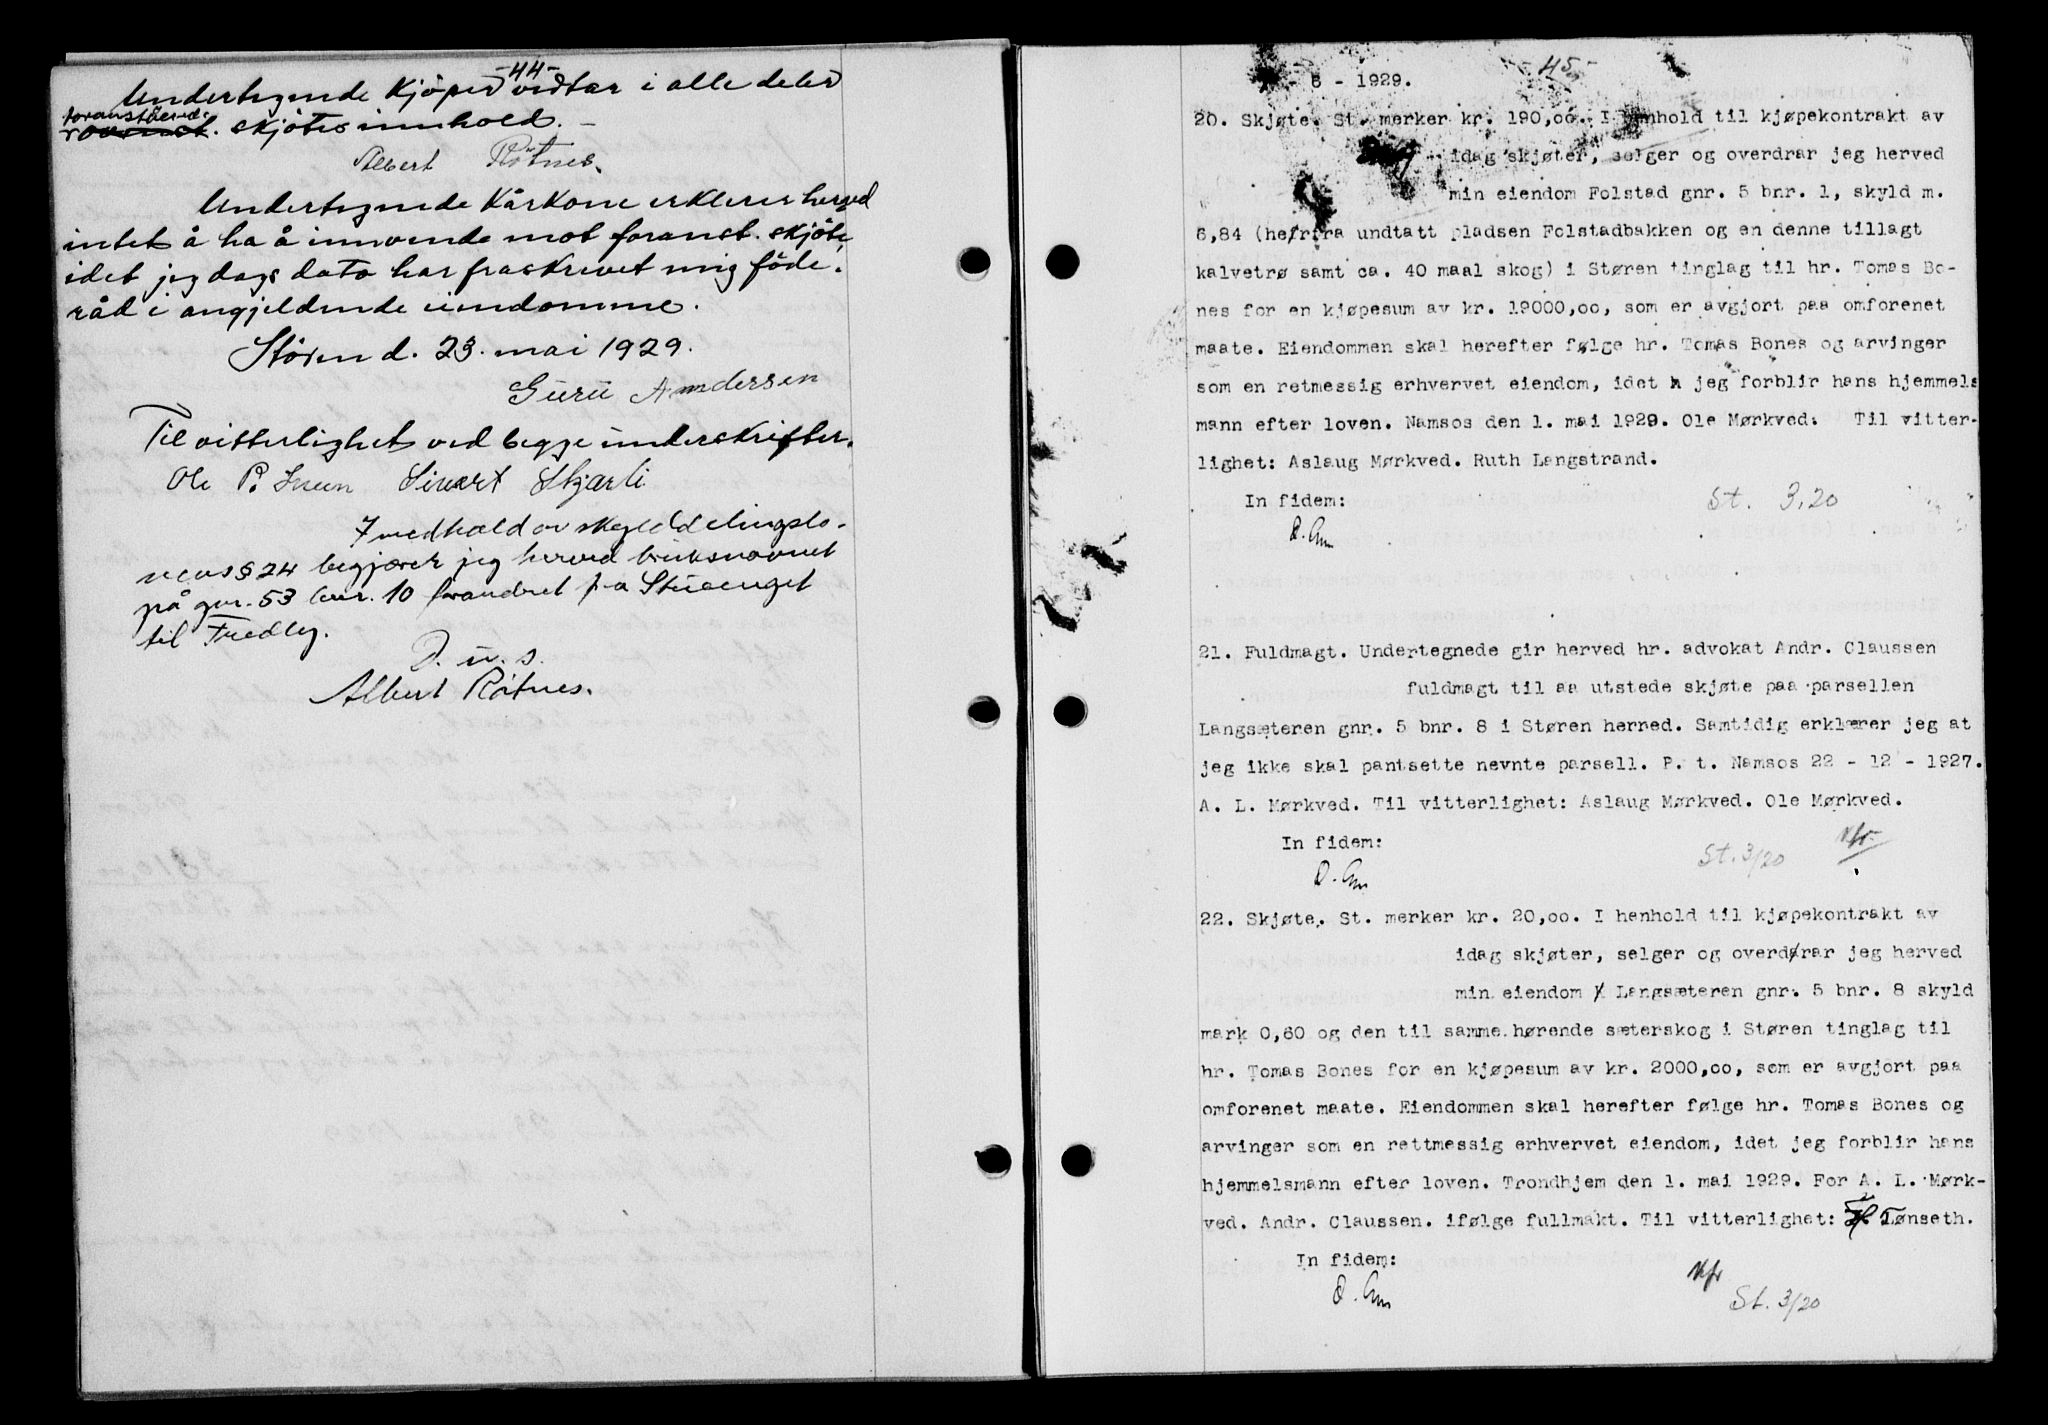 -44-
Undertegnede kjöper vedtar i alle deler
foranståend.
skjötes innhold. -
Albert Rötnes.
Undertegnede kårkone erklerer herved
intet å ha å innvende mot foranst. skjöte,
idet jeg dags dato har fraskrevet mig föde-
råd i angjeldende eiendomme.
Stören d. 23. mai 1929.
Guru Andersen
Til vitterlighet ved begge underskrifter.
Ole P. Sivert Skjærli
I medhold av skylddelingslo-
vens § 24 begjærer jeg herved bruksnavnet
på gnr. 53 bnr. 10 forandret fra Stuenget
til Fredly.
D. u. s.
Albert Rötnes.
-45-
6 - 1929.
20. Skjøte. St. merker kr. 190,oo. I henhold til kjøpekontrakt av
idag skjøter, selger og overdrar jeg herved
min eiendom Folstad gnr. 5 bnr. 1, skyld m.
6,84 (herfra undtatt pladsen Folstadbakken og en denne tillagt
kalvetrø samt ca. 40 maal skog) i Støren tinglag til hr. Tomas Bo-
nes for en kjøpesum av kr. 19000,oo, som er avgjort paa omforenet
maate. Eiendommen skal herefter følge hr. Tomas Bones og arvinger
som en retmessig erhvervet eiendom, idet jeg forblir hans hjemmels
mann efter loven. Namsos den 1. mai 1929. Ole Mørkved. Til vitter-
lighet: Aslaug Mørkved. Ruth Langstrand.
In fidem: St. 3,20
21. Fuldmagt. Undertegnede gir herved hr. advokat Andr. Claussen
fuldmagt til aa utstede skjøte paa parsellen
Langsæteren gnr. 5 bnr. 8 i Støren herred. Samtidig erklærer jeg at
jeg ikke skal pantsette nevnte parsell. P. t. Namsos 22 - 12 - 1927.
A. L. Mørkved. Til vitterlighet: Aslaug Mørkved. Ole Mørkved.
In fidem:
St. 3/20
22. Skjøte. St. merker kr. 20,oo. I henhold til kjøpekontrakt av
idag skjøter, selger og overdrar jeg herved
min eiendom Langsæteren gnr. 5 bnr. 8 skyld
mark 0,60 og den til samme hørende sæterskog i Støren tinglag til
hr. Tomas Bones for en kjøpesum av kr. 2000,oo, som er avgjort paa
omforenet maate. Eiendommen skal herefter følge hr. Tomas Bones og
arvinger som en rettmessig erhvervet eiendom, idet jeg forblir hans
hjemmelsmann efter loven. Trondhjem den 1. mai 1929. For A. L. Mørk-
ved. Andr. Claussen. ifølge fullmakt. Til vitterlighet: Tønseth.
In fidem:
St. 3/20